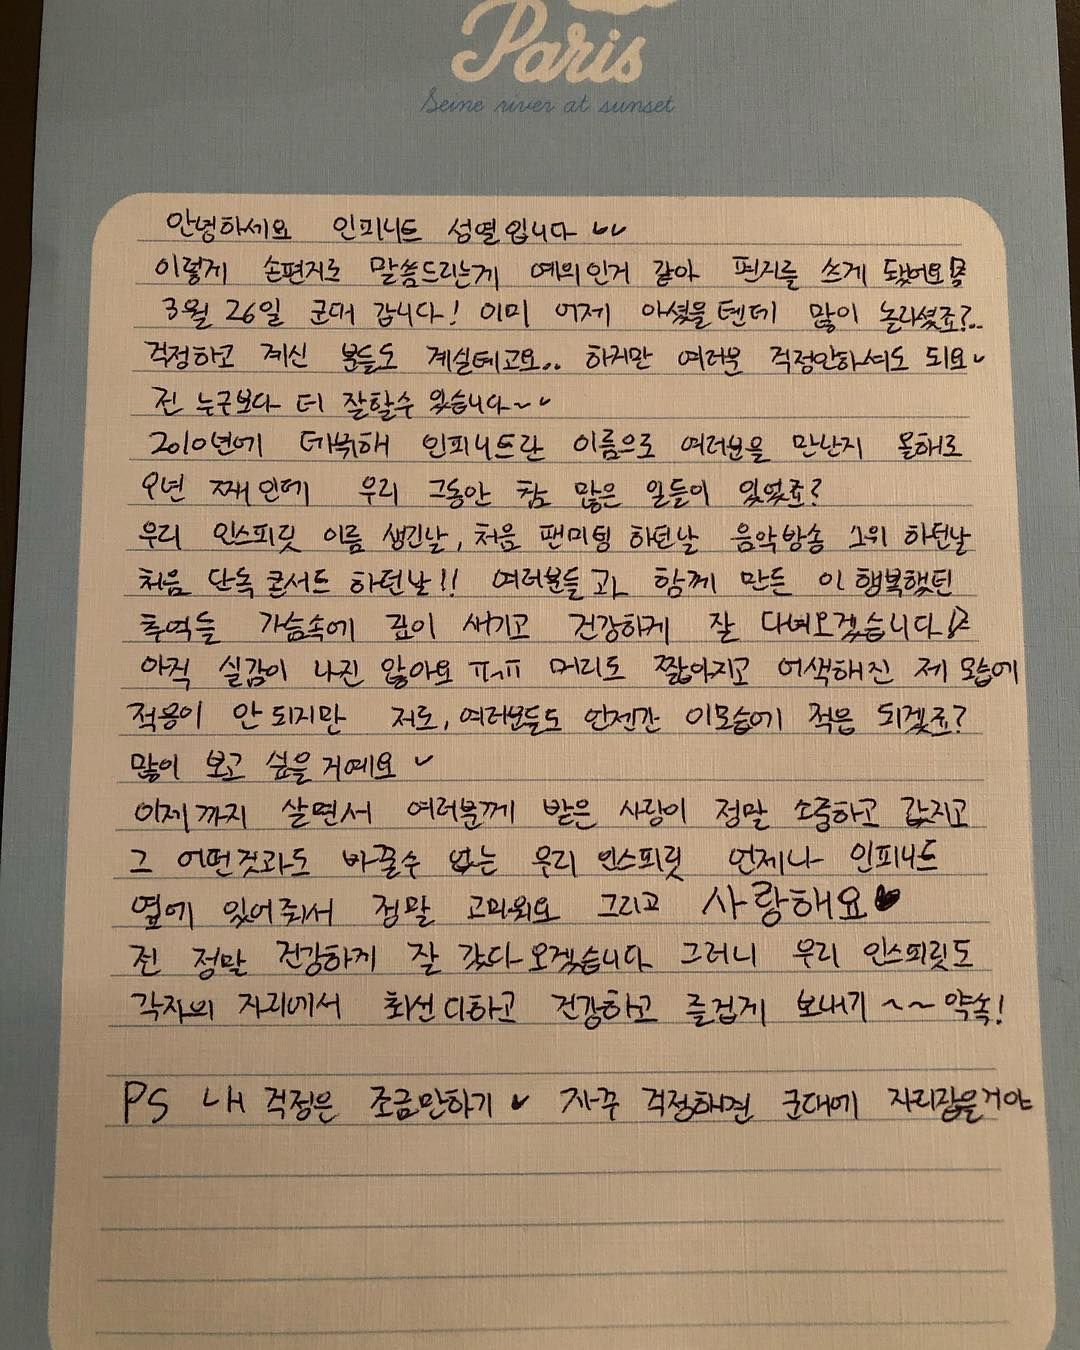 Paris
Seine river at sunset
안녕하세요 인피니트 성열입니다
이렇게 손편지로 말씀드리는게 예의인거 같아 편지를 쓰게 됐어요
3월 26일 군대 갑니다! 이미 어제 아셨을텐데 많이 놀라셨죠?..
걱정하고 계신 분들도 계실테고요.. 하지만 여러분 걱정안하셔도 되요
전 누구보다 더 잘할수 있습니다~
2010년에 데뷔해 인피니트란 이름으로 여러분을 만난지 올해로
9년 째인데 우리 그동안 참 많은 일들이 있었죠?
우리 인스피릿 이름 생긴날, 처음 팬미팅 하던날 음악방송 1위 하던날
처음 단독콘서트 하던날!! 여러분들과 함께 만든 이 행복했던
추억들 가슴속에 깊이 새기고 건강하게 잘 다녀오겠습니다
아직 실감이 나진 않아요 ㅠㅠ 머리도 짧아지고 어색해진 제 모습에
적응이 안되지만 저도, 여러분들도 언젠간 이모습에 적응 되겠죠?
많이 보고 싶을거예요
이제까지 살면서 여러분께 받은 사랑이 정말 소중하고 값지고
그 어떤것과도 바꿀수 없는 우리 인스피릿 언제나 인피니트
옆에 있어줘서 정말 고마워요 그리고 사랑해요♥
전 정말 건강하게 잘 갔다오겠습니다 그러니 우리 인스피릿도
각자의 자리에서 최선 다하고 건강하고 즐겁게 보내기~~ 약속!
PS 내 걱정은 조금만하기 자꾸 걱정하면 군대에 자리잡을거야